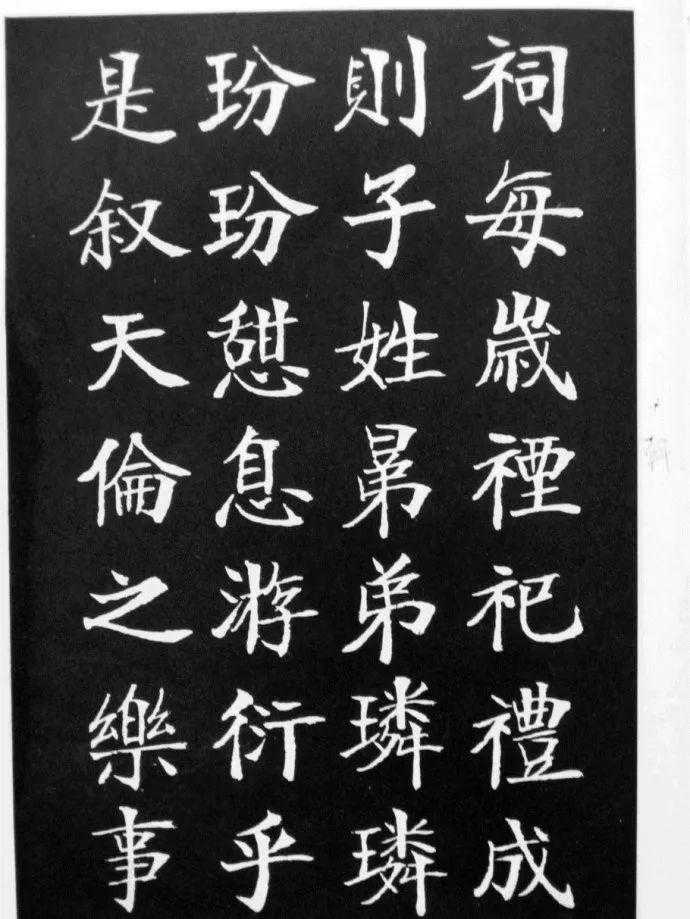 祠每歲禋祀禮成
則子姓晜弟璘璘
玢玢憇息游衍乎
是叙天倫之樂事